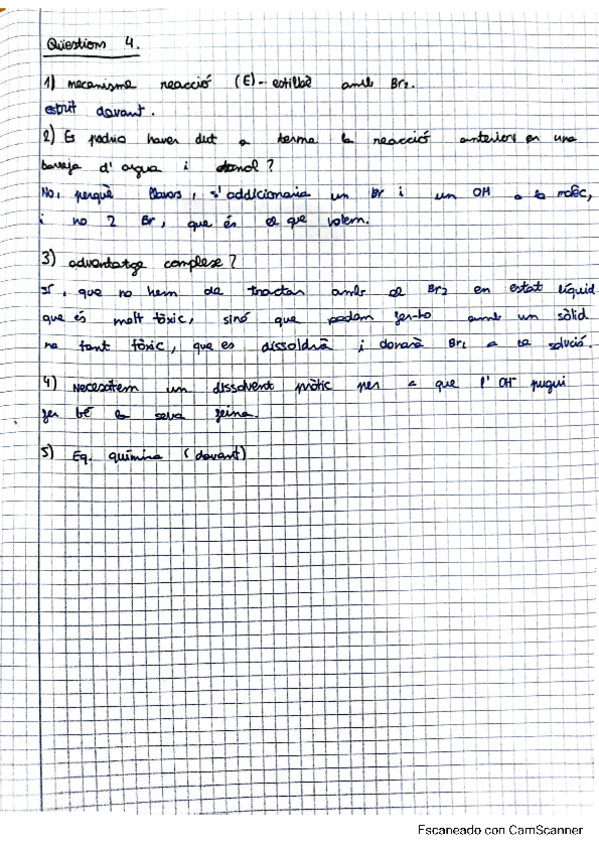 Qüestions 4.
1) mecanisme reacció (E)-estilbè amb Br2.
estrit davant.
2) Es podria haver dut a terme la reacció anterior en una
barreja d'aigua i etanol?
No, perquè llavors, s'addicionaria un Br i un OH a la molèc,
i no 2 Br, que és el que volem.
3) advantatge complexe?
Sí, que no hem de tractar amb el Br2 en estat líquid
que és molt tòxic, sinó que podem fer-ho amb un sòlid
no tant tòxic, que es dissoldrà i donarà Br2 a la solució.
4) Necesitem un dissolvent pròtic per a que l'OH- pugui
fer bé la seva feina.
5) Eq. química (davant)
Escaneado con CamScanner